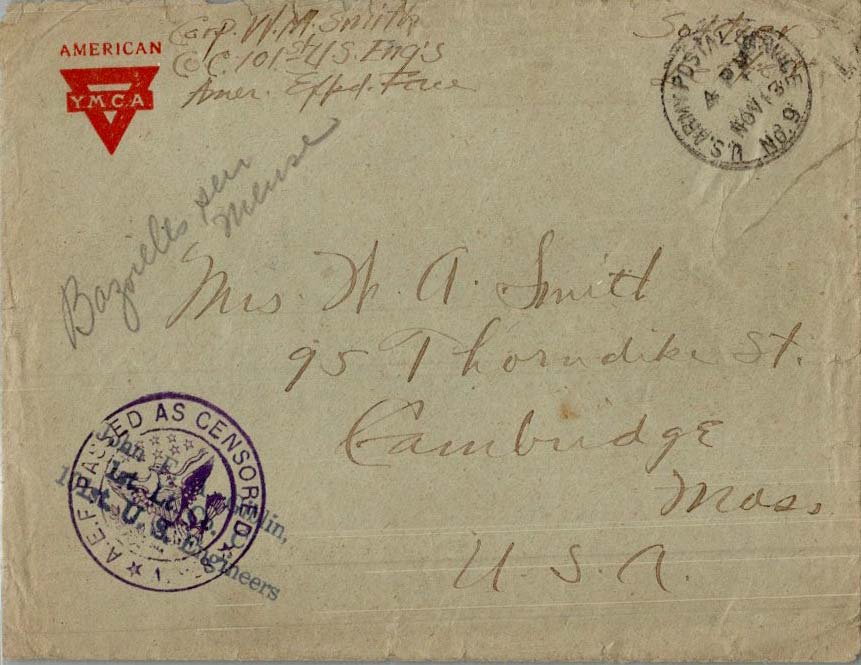 AMERICAN
Y.M.C.A.
Corp. W. M. Smith
Co C. 101st U S. Eng's
Amer. Expd. Force
U.S. ARMY POSTAL SERVICE
4 PM
NOV 13
No. 9
Bazoilles sur
Meuse
Mrs. W. A. Smith
95 Thorndike St.
Cambridge
Mass.
U. S. A.
A.E.F. PASSED AS CENSORED
John F.
1st Lt. Co. C
101st. U. S. Engineers